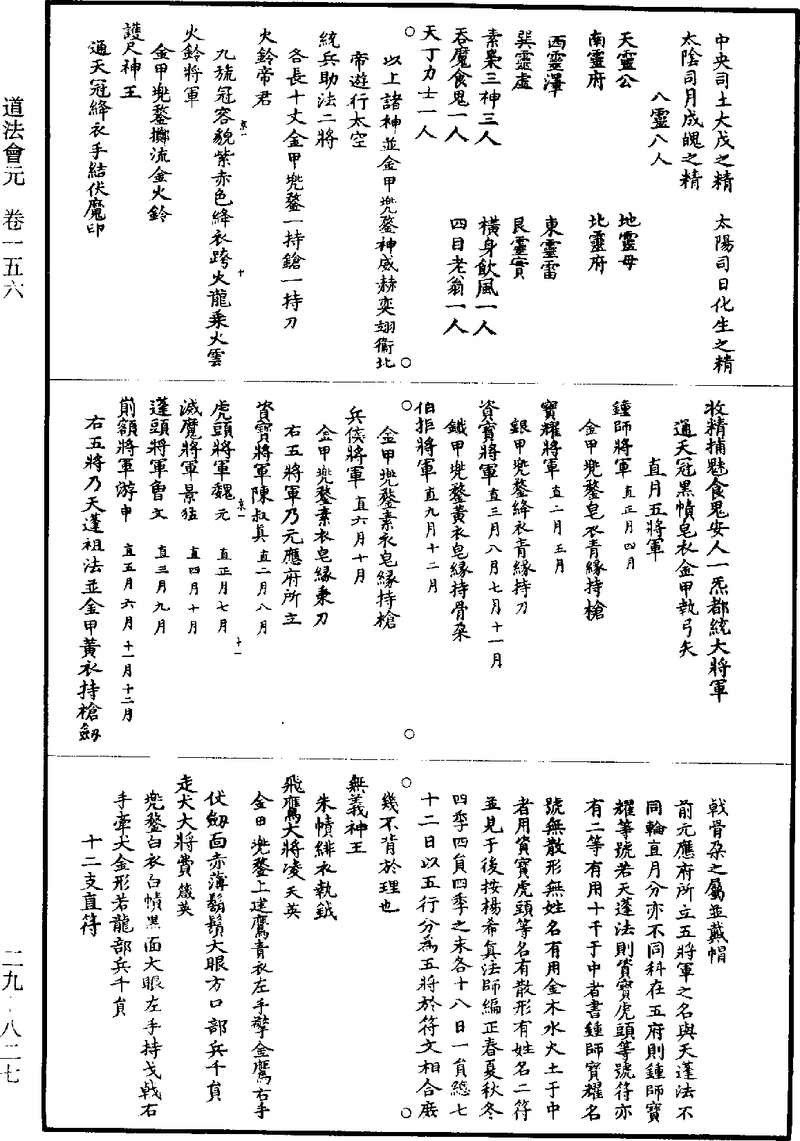 道法會元 卷一五六
中央司土大戊之精 太陽司日化生之精
太陰司月成魄之精
八靈八人
天靈公 地靈母
南靈府 北靈府
西靈澤 東靈雷
巽靈虛 艮靈實
素梟三神三人 橫身飲風一人
吞魔食鬼一人 四目老翁一人
天丁力士一人
以上諸神並金甲兜鍪神威赫奕翊衛北
帝遊行太空
統兵助法二將
各長十丈金甲兜鍪一持鎗一持刀
火鈴帝君
九旒冠容貌紫赤色絳衣跨火龍乘火雲
火鈴將軍
金甲兜鍪擲流金火鈴
護尺神王
通天冠絳衣手結伏魔印
收精捕魅食鬼安人一炁都統大將軍
通天冠黑幘皂衣金甲執弓矢
直月五將軍
鍾師將軍 直正月四月
金甲兜鍪皂衣青緣持槍
寶耀將軍 直二月三月
銀甲兜鍪絳衣青緣持刀
資寶將軍 直三月八月七月十一月
鐵甲兜鍪黃衣皂緣持骨朶
伯拒將軍 直九月十二月
金甲兜鍪素衣皂緣持槍
兵侯將軍 直六月十月
金甲兜鍪素衣皂緣秉刀
右五將軍乃元應府所立
資寶將軍陳叔真 直二月八月
虎頭將軍魏元 直正月七月
滅魔將軍景猛 直四月十月
蓬頭將軍曹文 直三月九月
剪額將軍游申 直五月六月十一月十二月
右五將乃天蓬祖法並金甲黃衣持槍劔
戟骨朶之屬並戴帽
前元應府所立五將軍之名與天蓬法不
同輪直月分亦不同科在五府則鍾師寶
耀等號若天蓬法則資寶虎頭等號符亦
有二等有用十干于中者書鍾師寶耀名
號無散形無姓名有用金木水火土于中
者用資寶虎頭等名有散形有姓名二符
並見于後按楊希真法師編正春夏秋冬
四季四員四季之末各十八日一員總七
十二日以五行分為五將於符文相合庶
幾不背於理也
無義神王
朱幘緋衣執鉞
飛鷹大將凌天英
金甲兜鍪上建鷹青衣左手擎金鷹右手
伏劔面赤薄鬍鬚大眼方口部兵千員
走犬大將費𥳑英
兜鍪白衣白幘黑面大眼左手持戈戟右
手牽犬金形若龍部兵千員
十二支直符
二九－八二七